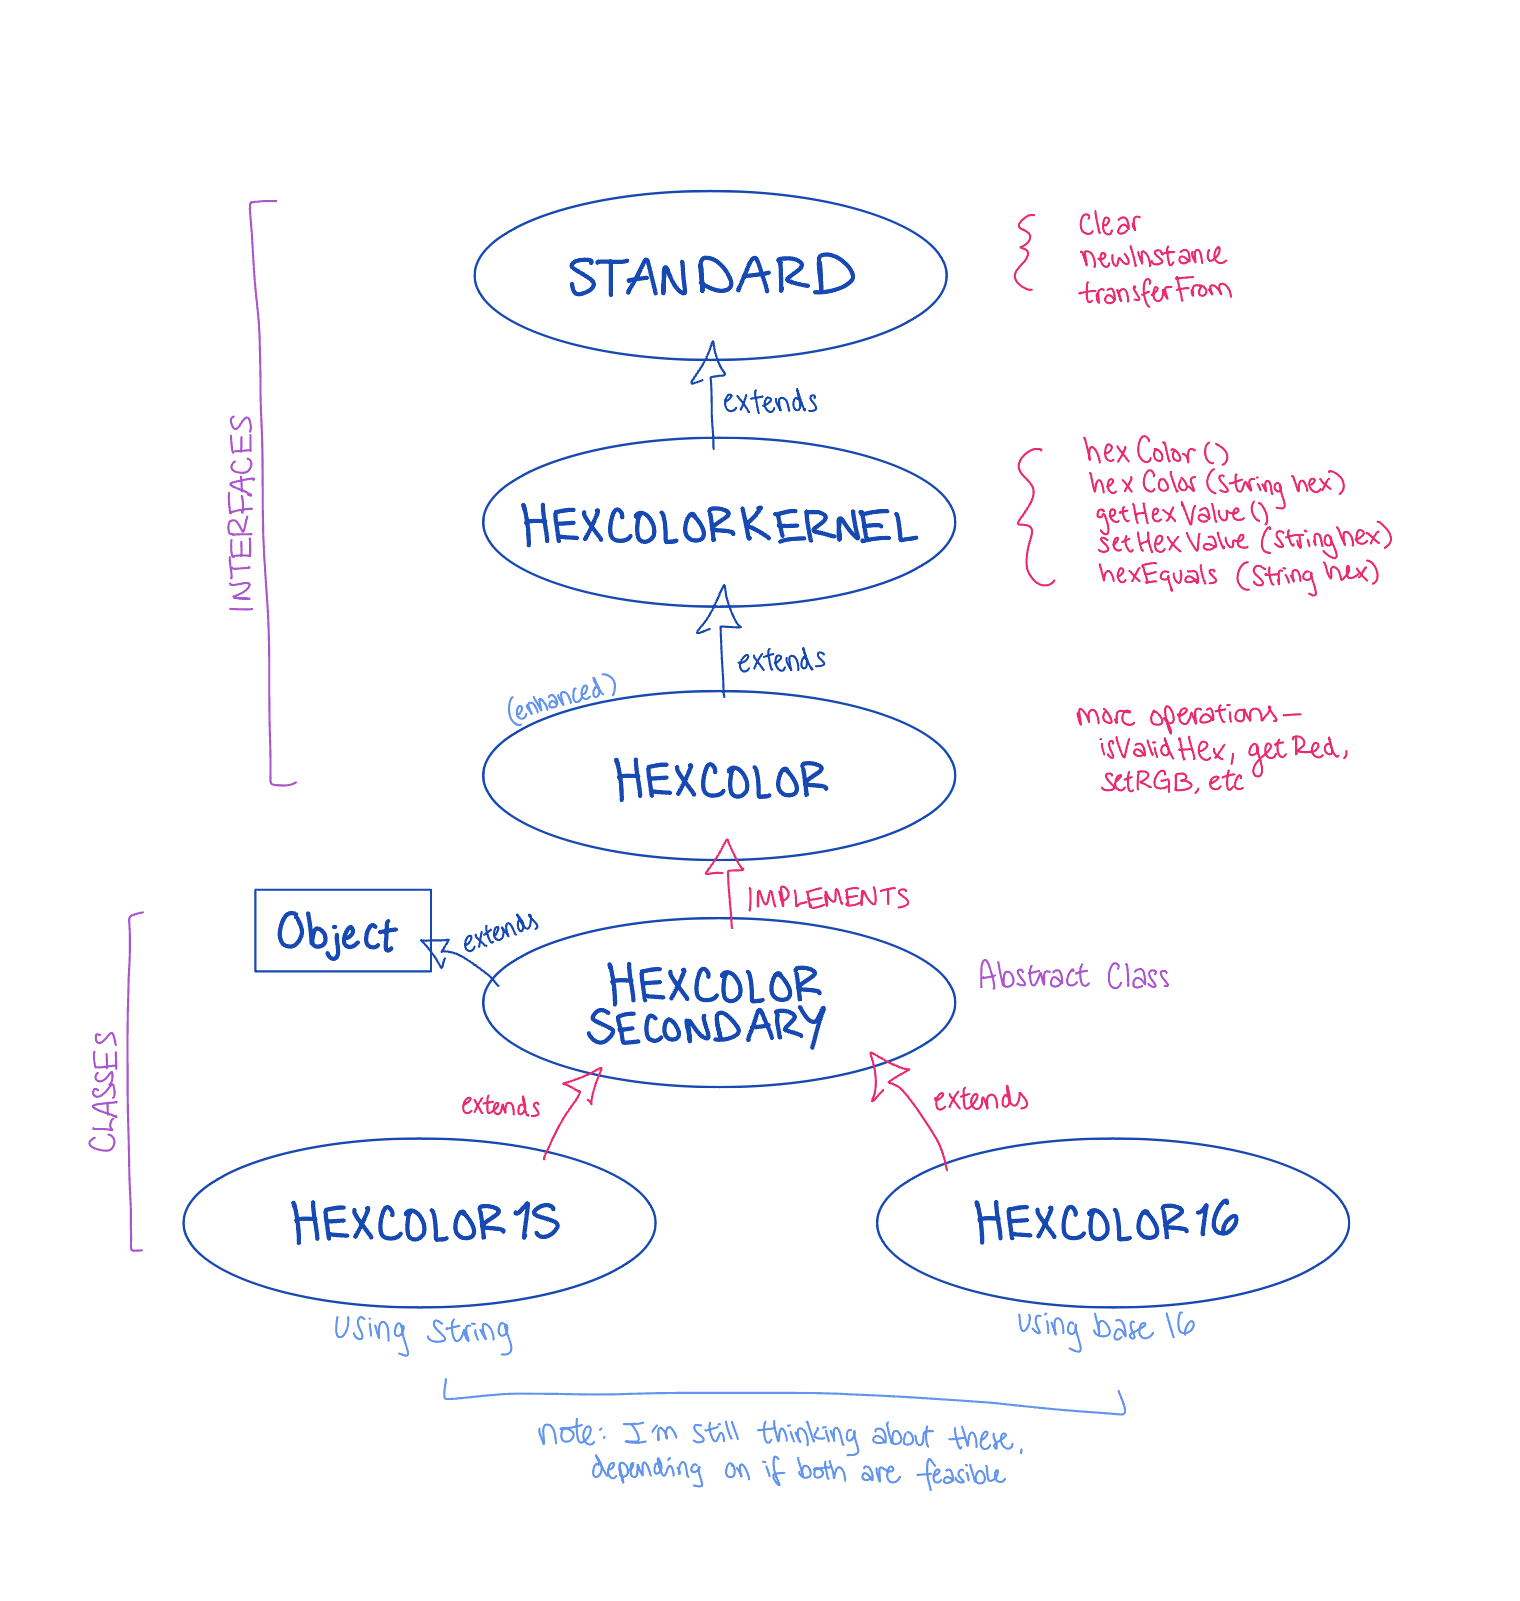 STANDARD
clear
newInstance
transferFrom
extends
INTERFACES
HEXCOLORKERNEL
hexColor()
hexColor(String hex)
getHexValue()
setHexValue (String hex)
hexEquals (String hex)
extends
(enhanced)
HEXCOLOR
more operations—
isValidHex, getRed,
setRGB, etc
IMPLEMENTS
Object
extends
HEXCOLOR
SECONDARY
Abstract Class
CLASSES
extends
extends
HEXCOLOR1S
HEXCOLOR16
using string
using base 16
note: I'm still thinking about these,
depending on if both are feasible